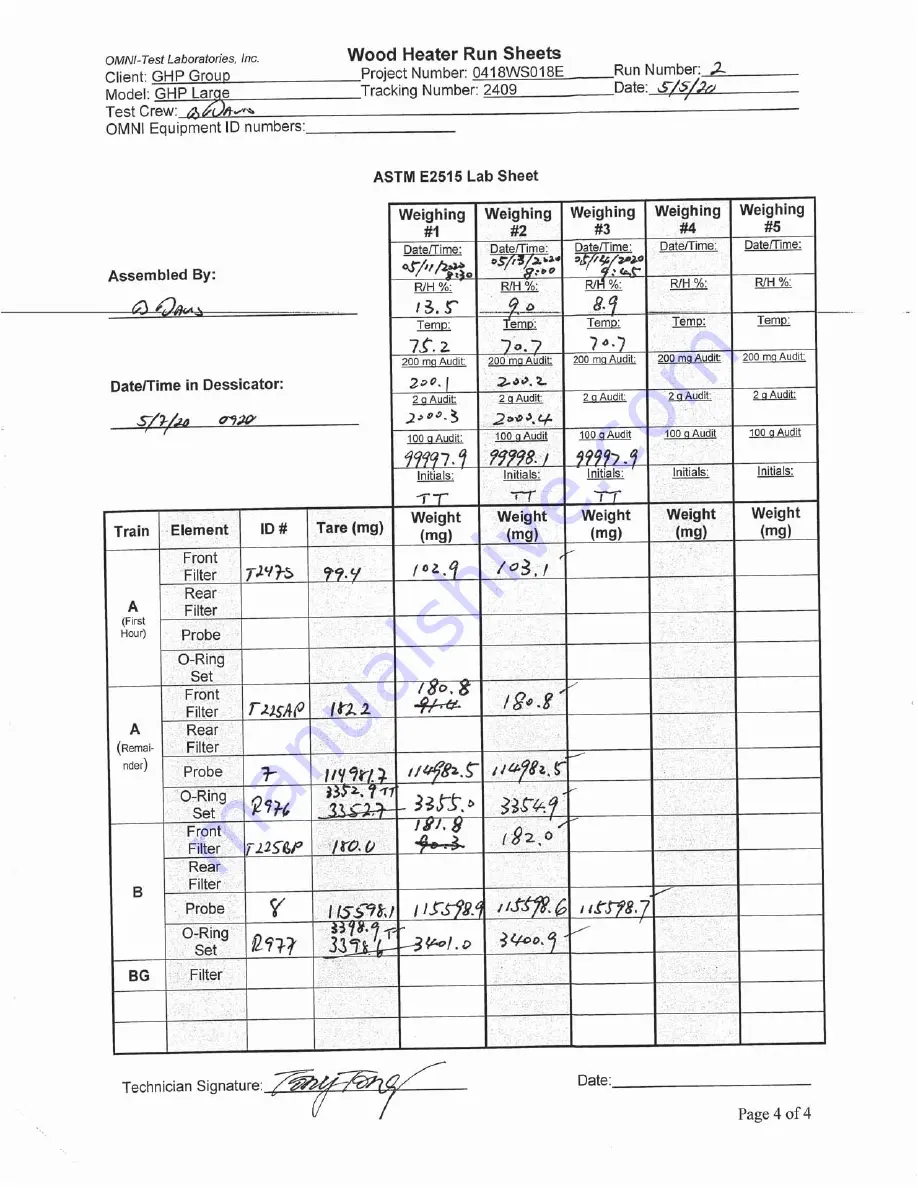 OMNI-Test Laboratories, Inc. Wood Heater Run Sheets
Client: GHP Group Project Number: 0418WS018E Run Number: 2
Model: GHP Large Tracking Number: 2409 Date: 5/5/20
Test Crew:
OMNI Equipment ID numbers:
ASTM E2515 Lab Sheet
Weighing #1 Weighing #2 Weighing #3 Weighing #4 Weighing #5
Date/Time: Date/Time: Date/Time: Date/Time: Date/Time:
05/11/2020 8:30 05/13/2020 8:00 05/14/2020 9:45
Assembled By:
R/H %: R/H %: R/H %: R/H %: R/H %:
13.5 9.0 8.9
Temp: Temp: Temp: Temp: Temp:
75.2 70.7 70.7
200 mg Audit: 200 mg Audit: 200 mg Audit: 200 mg Audit: 200 mg Audit:
Date/Time in Dessicator:
200.1 200.2
2 g Audit: 2 g Audit: 2 g Audit: 2 g Audit: 2 g Audit:
5/7/20 0920
2000.3 2000.4
100 g Audit: 100 g Audit 100 g Audit 100 g Audit 100 g Audit
99997.9 99998.1 99997.9
Initials: Initials: Initials: Initials: Initials:
TT TT TT
Train Element ID # Tare (mg) Weight (mg) Weight (mg) Weight (mg) Weight (mg) Weight (mg)
A (First Hour)
Front Filter T247S 99.4 102.9 103.1
Rear Filter
Probe
O-Ring Set
A (Remainder)
Front Filter T225AP 182.2 180.8 180.8
Rear Filter
Probe 7 114981.7 114982.5 114982.5
O-Ring Set R976 3352.9 TT 3352.7 3355.0 3354.9
B
Front Filter T225BP 180.0 181.8 90.3 182.0
Rear Filter
Probe 8 115598.1 115598.9 115598.6 115598.7
O-Ring Set R977 3398.9 TT 3398.6 3401.0 3400.9
BG Filter
Technician Signature: Tony Tong Date:
Page 4 of 4
manualshive.com